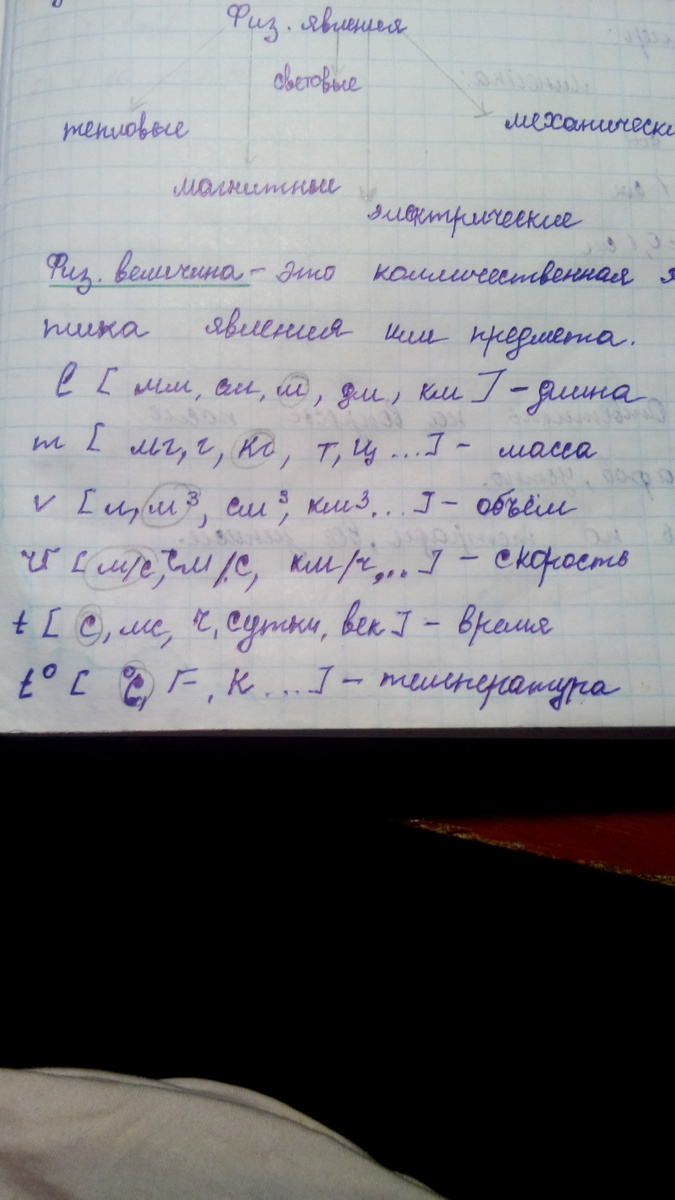 Физ. явления
световые
тепловые
механически
магнитные
электрические
Физ. величина - это количественная х
тика явления или предмета.
l [ мм, см, м, дм, км ] - длина
m [ мг, г, кг, т, ц ...] - масса
V [л, м³, см³, км³...] - объём
v [ м/с, см/с, км/ч,...] - скорость
t [ с, мс, ч, сутки, век ] - время
t° [ °С, F, К ....] - температура